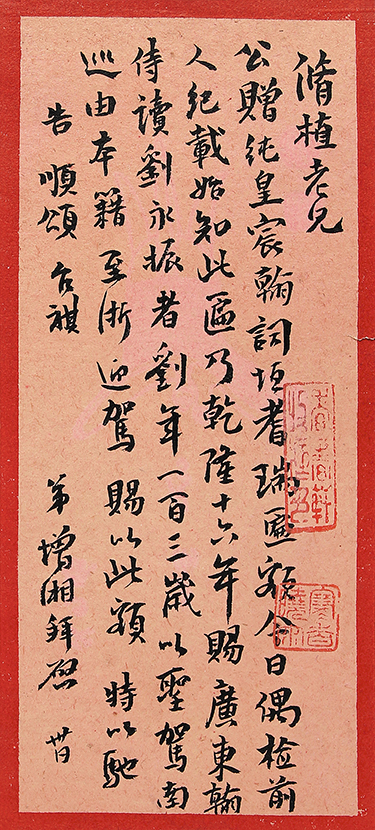 脩植老兄
公贈純皇宸翰詞垣耆瑞匾額今日偶檢前
人紀載始知此匾乃乾隆十六年賜廣東翰
侍讀劉永振者劉年一百三歲以聖駕南
巡由本籍至浙迎駕賜以此額特以馳
告順頌台祺
弟增湘拜啓